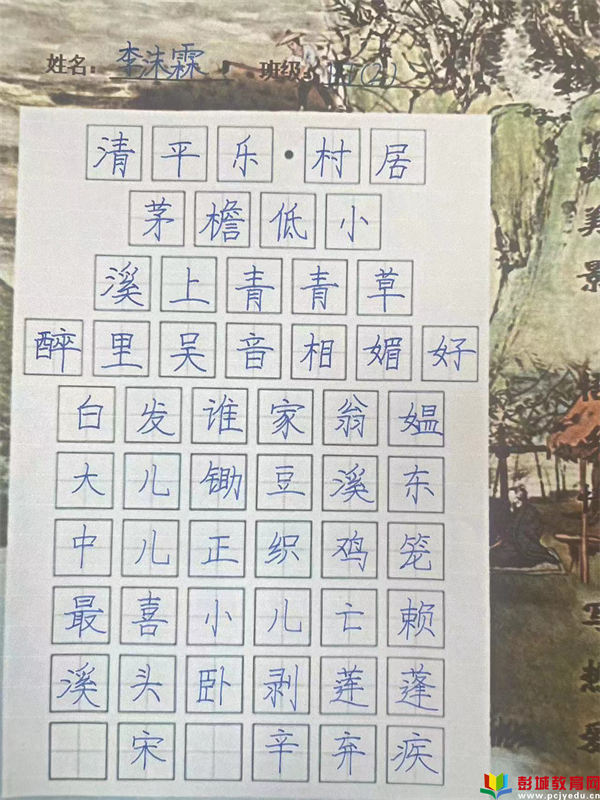 姓名：李沫霖 班级：
清平乐·村居
茅檐低小
溪上青青草
醉里吴音相媚好
白发谁家翁媪
大儿锄豆溪东
中儿正织鸡笼
最喜小儿亡赖
溪头卧剥莲蓬
宋 辛弃疾
彭城教育网
www.pcjyedu.cn